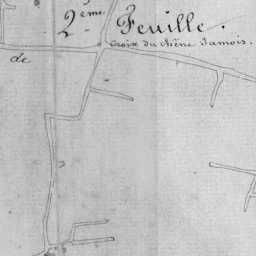 2.eme Feuille.
Croix du chêne Jamois.
de